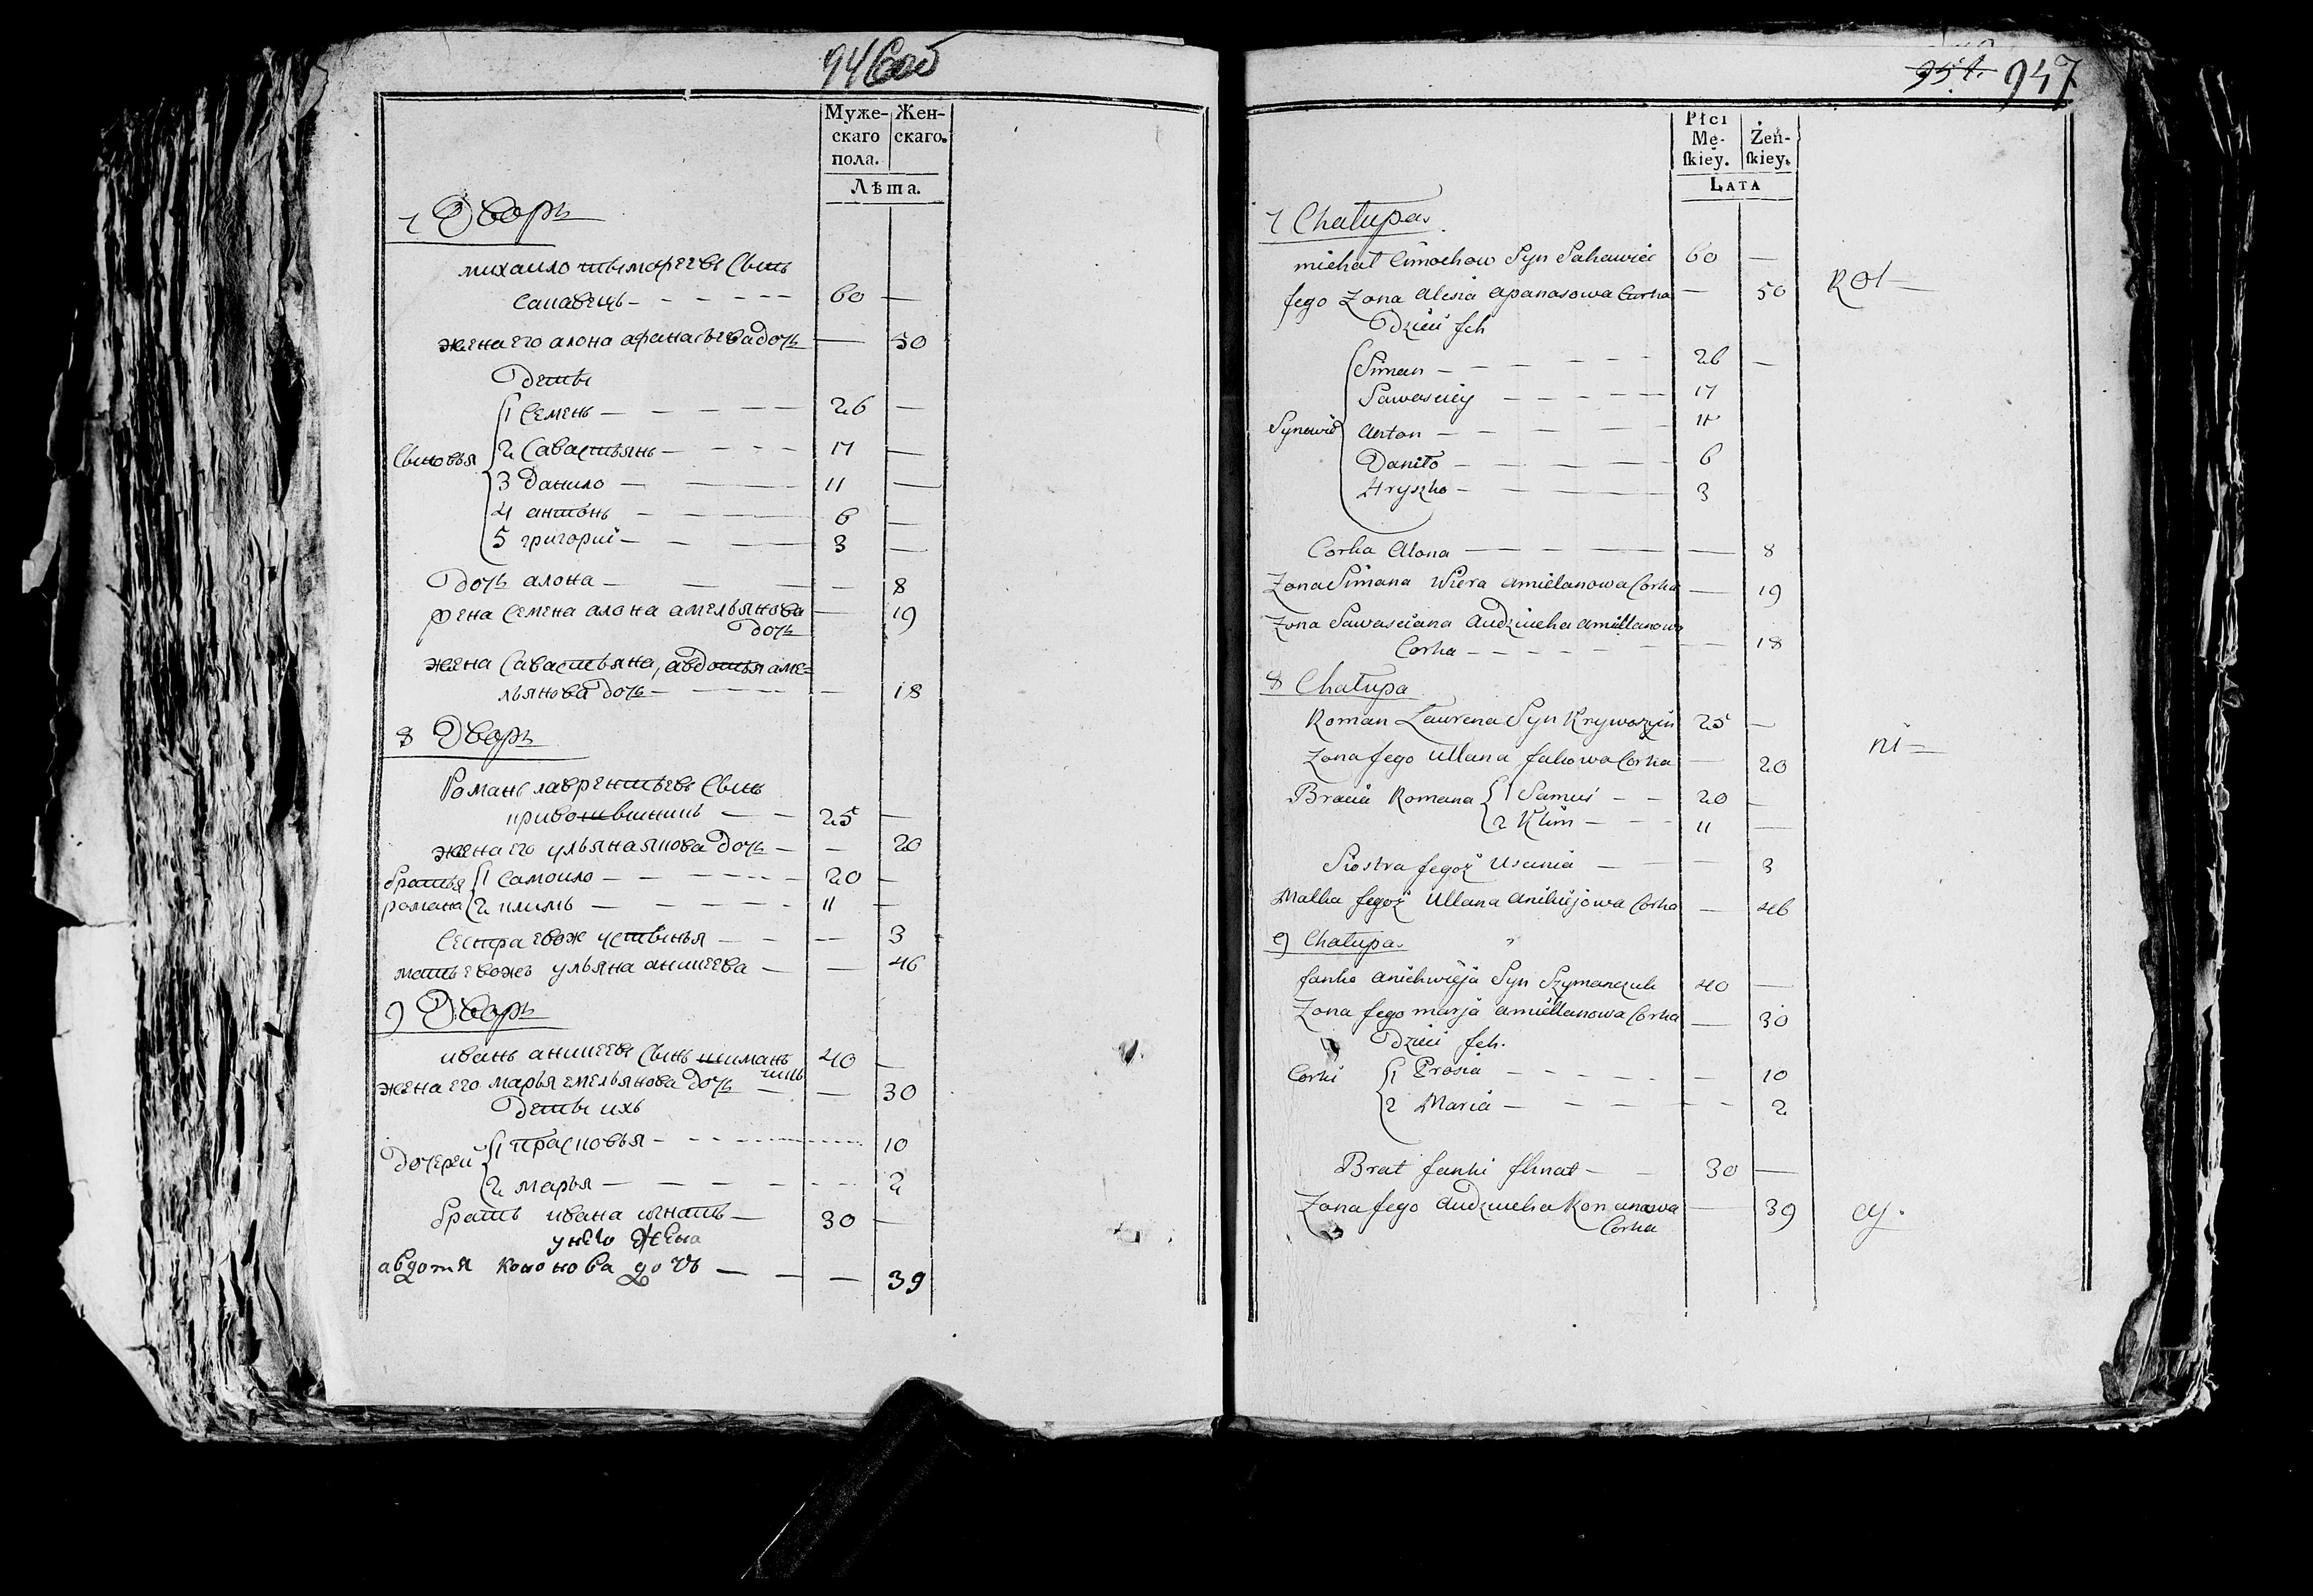 946 об
Муже-
скаго
пола.
Жен-
скаго.
Лѣта.
7 Дворъ
михаило тымофеевъ Сынъ
Сапавецъ 60
жена его алона афанасьева дочь 50
Дети
Сыновья
1 Семенъ 26
2 Савастьянъ 17
3 Данило 11
4 антонъ 6
5 григории 3
Дочь алона 8
жена Семена алона амельянова
дочь 19
жена Савастьяна, авдотья аме=
льянова дочь 18
8 Дворъ
Романъ лаврентьевъ Сынъ
25
жена его ульяна якова дочь 20
братья
романа
1 Самоило 20
2 климъ 11
Сестра евож устинья 3
мать евожъ ульяна аникеева 46
9 Дворъ
иванъ аникеевъ Сынъ шиман
чикъ 40
жена его марья емельянова дочь 30
Дети ихъ
Дочереи
1 прасковья 10
2 марья 2
братъ ивана игнатъ 30
у него жена
авдотя кононова дочь 39
951. 947
Płci
Mę-
ſkiéy.
Żeń-
ſkiey.
LATA
7 Chałupa.
michał Cimochow Syn Sakawiec 60
Jego Zona Alesia apanasowa Curka 50
Dzieci Jch
Synowie
Siman 26
Sawasciey 17
Anton 11
Daniło 6
Hryszko 3
Corka Alona 8
Zona Simana Wiera amiellanowa Corka 19
Zona Sawasciana Audziucha amiellanowa
Corka 18
8 Chałupa
Roman Laurena Syn Krywoszyin 25
Zona Jego Ullana Jakowa Corka 20
Bracia Romana
1 Samuś 20
2 Klim 11
Siostra Jegoż Uscinia 3
Matka Jegoż Ullana anikiejowa Corka 46
9 Chałupa.
Janko anichwieja Syn Szymanczuk 40
Zona Jego marja amiellanowa Corka 30
Dzieci Jch.
Corki
1 Prosia 10
2 Maria 2
Brat Janki Jhnat 30
Zona Jego Audziucha Kononowa
Corka 39
Rot
ni
cy.